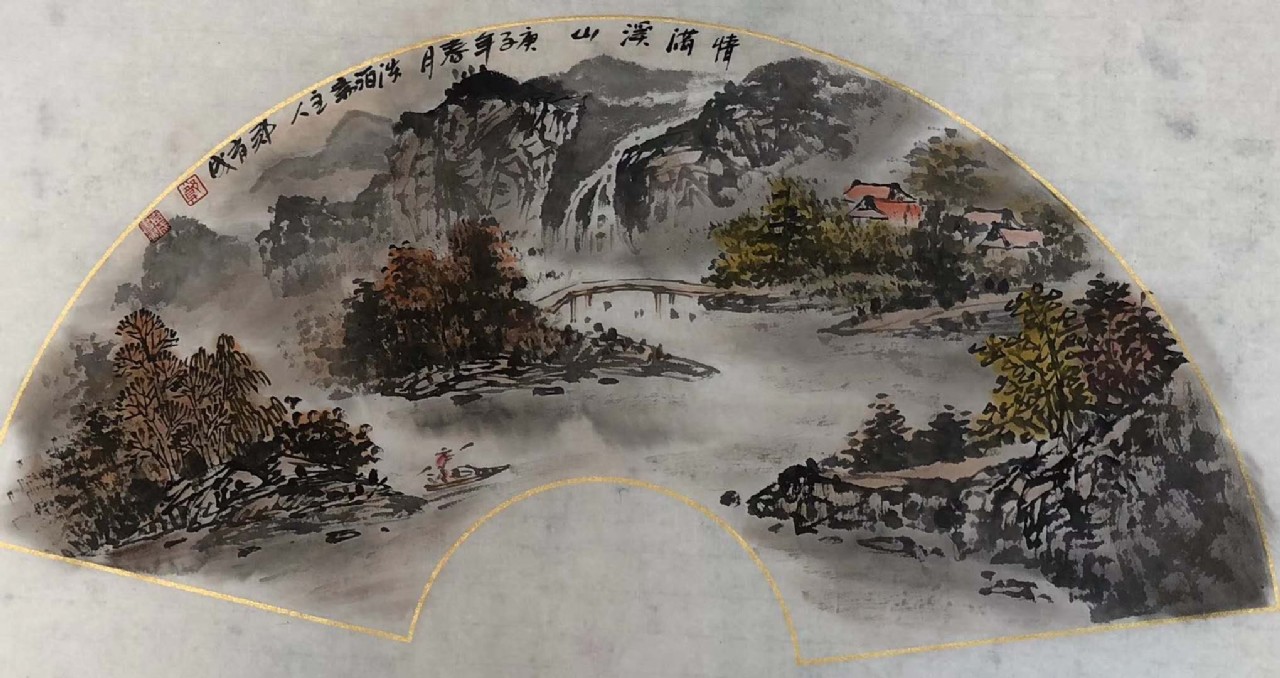 情满溪山 庚子年春月 淡泊斋主人 郑有成